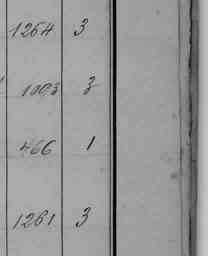 1264 3
1003 3
466 1
1261 3